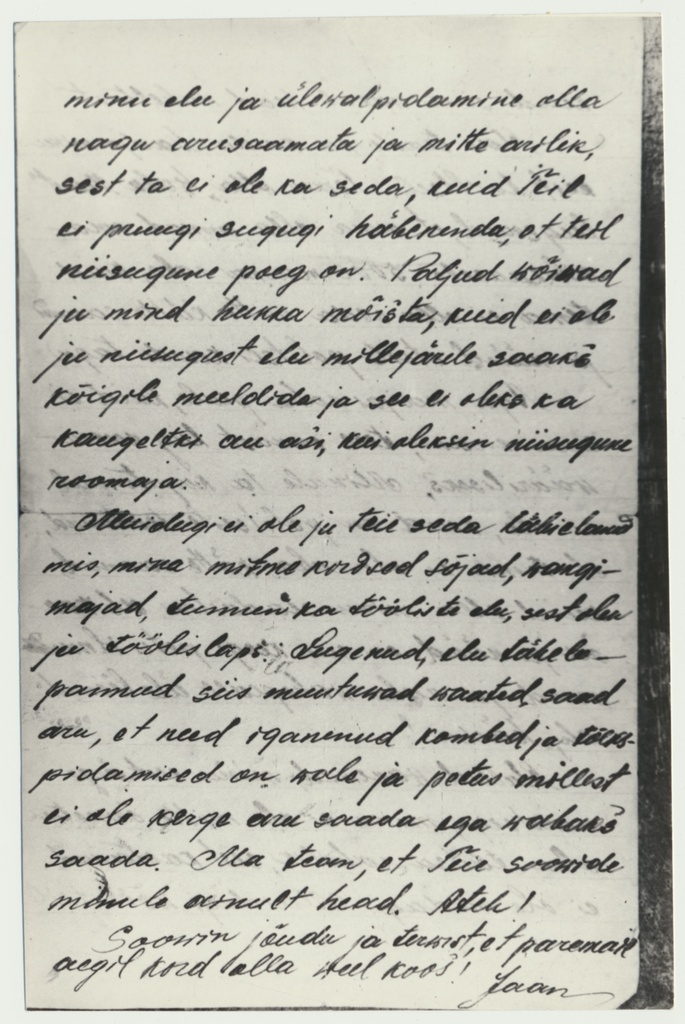 minu elu ja ülewalpidamine olla
nagu arusaamata ja mitte arilik,
sest ta ei ole ka seda, kuid Teil
ei pruugi sugugi häbenenda, et teil
niisugune poeg on. Paljud wõiwad
ju mind hukka mõista, kuid ei ole
ju niisugust elu millejärele saaks
kõigile meeldida ja see ei oleks ka
kaugeltki au asi, kui oleksin niisugune
roomaja.
Muidugi ei ole ju teie seda läbielanud
mis, mina mitme kordsed sõjad, wangi-
majad, tunnen ka tööliste elu, sest olen
ju töölislaps. Lugenud, elu tähele-
pannud siis muutuwad waated, saad
aru, et need iganenud kombed ja tões-
pidamised on wale ja petus millest
ei ole kerge aru saada ega wabaks
saada. Ma tean, et Teie soowide
minule ainult head. Ateh!
Soowin jõudu ja terwist, et paremail
aegil kord olla weel koos!
Jaan